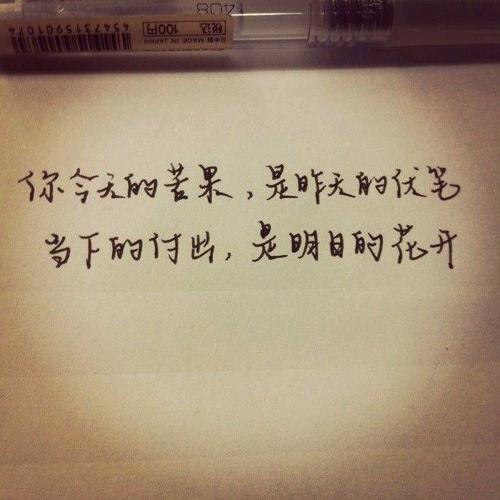 1408
4547315901074
税込
100円
MADE IN JAPAN
你今天的苦果，是昨天的伏笔
当下的付出，是明日的花开